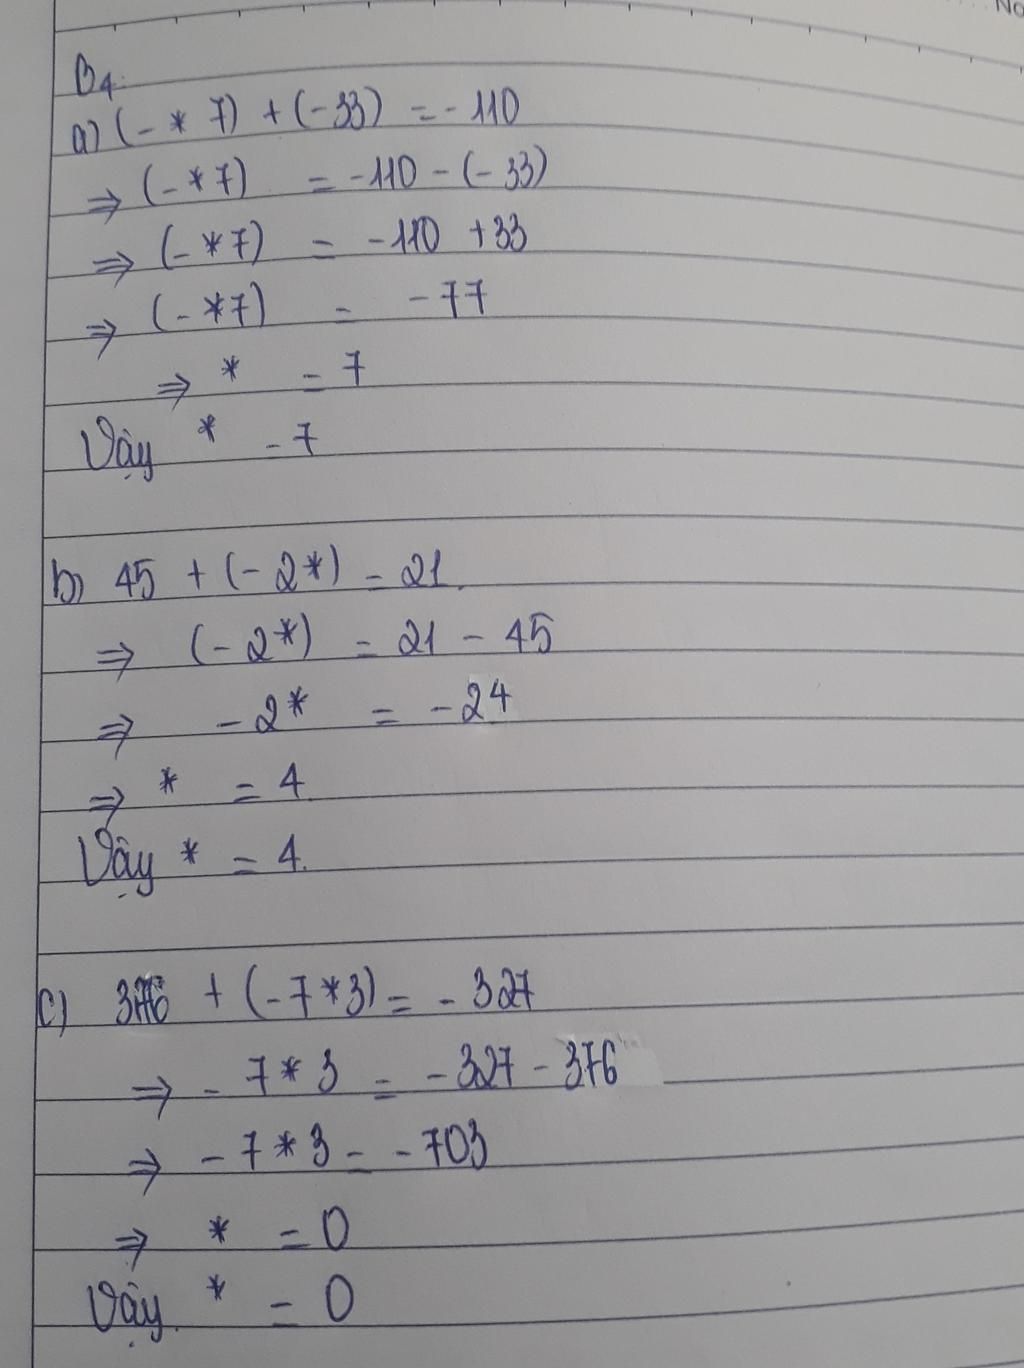 No
B4.
a) (- * 7) + (-33) = - 110
⇒ (- * 7) = -110 - (- 33)
⇒ (- * 7) = - 110 + 33
⇒ (- * 7) = - 77
⇒ * = 7
Vậy * = 7
b) 45 + (- 2*) = 21.
⇒ (- 2*) = 21 - 45
⇒ - 2* = - 24
⇒ * = 4
Vậy * = 4.
c) 376 + (- 7 * 3) = - 327
⇒ - 7 * 3 = - 327 - 376
⇒ - 7 * 3 = - 703
⇒ * = 0
Vậy * = 0